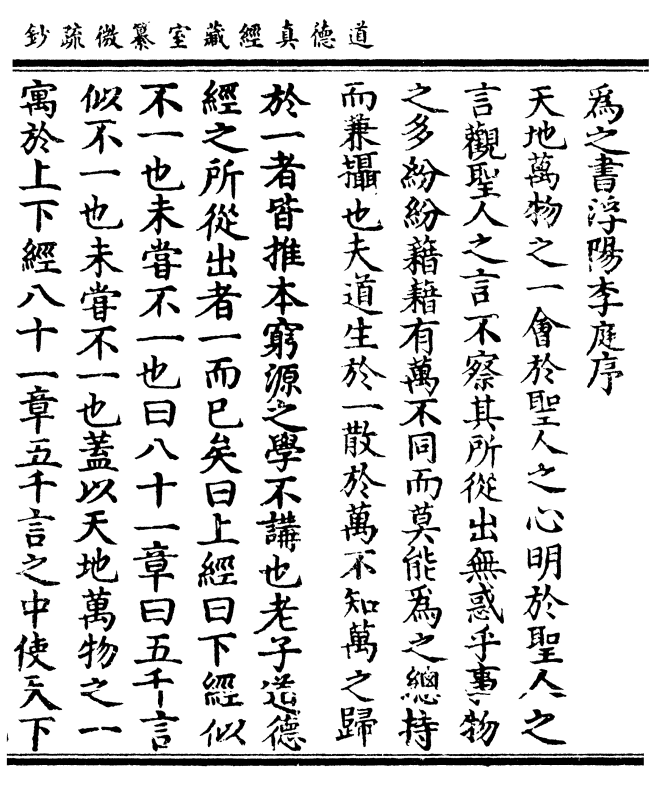 道德真經藏室纂微疏鈔
為之書浮陽李庭序
天地萬物之一會於聖人之心明於聖人之
言觀聖人之言不察其所從出無惑乎事物
之多紛紛藉藉有萬不同而莫能為之總持
而兼攝也夫道生於一散於萬不知萬之歸
於一者皆推本窮源之學不講也老子道德
經之所從出者一而已矣曰上經曰下經似
不一也未嘗不一也曰八十一章曰五千言
似不一也未嘗不一也蓋以天地萬物之一
寓於上下經八十一章五千言之中使天下